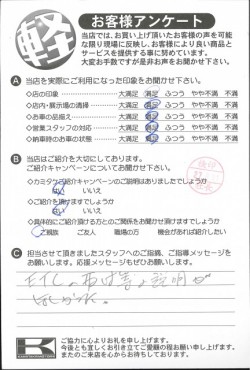 軽
お客様アンケート
当店では、お買い上げ頂いたお客様の声を可能
な限り現場に反映し、お客様により良い商品と
サービスを提供する事に努めています。
大変お手数ですが是非お声をお聞かせ下さい。
A 当店を実際にご利用になった印象をお聞かせ下さい。
◇店の印象 大満足 満足 ふつう やや不満 不満
◇店内・展示場の清掃 大満足 満足 ふつう やや不満 不満
◇お車の品揃え 大満足 満足 ふつう やや不満 不満
◇営業スタッフの対応 大満足 満足 ふつう やや不満 不満
◇納車時のお車の状態 大満足 満足 ふつう やや不満 不満
B 当店はご紹介を大切にしております。
ご紹介キャンペーンについてお聞かせ下さい。
◇カミタケご紹介キャンペーンのご説明はありましたでしょうか
はい いいえ
◇ご紹介を頂けますでしょうか
はい いいえ
◇具体的にご紹介頂ける方とのご関係をお聞かせ頂けますでしょうか
ご親族 ご友人 職場の方 機会があれば紹介したい
C 担当させて頂きましたスタッフへのご指摘、ご指導メッセージを
お願いします。応援メッセージもぜひお願いします。
ETCの取付等の説明が
ほしかった。
K
ご協力に心よりお礼を申し上げます。
今後とも宜しくお引き立てご愛顧の程お願い申し上げます。
またのご来店を心からお待ちしております。